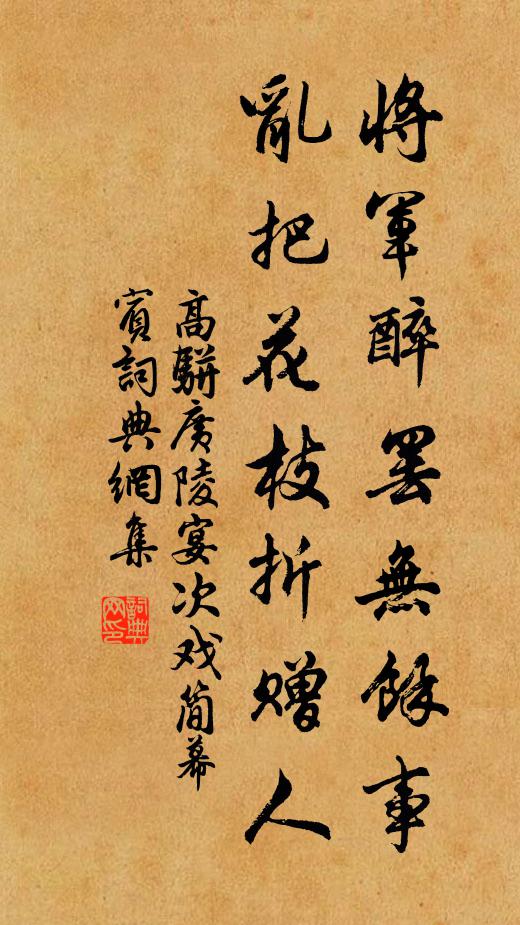 將軍醉罷無餘事
亂把花枝折贈人
高駢廣陵宴次戏簡幕
賓詞典網集
詞典
网印